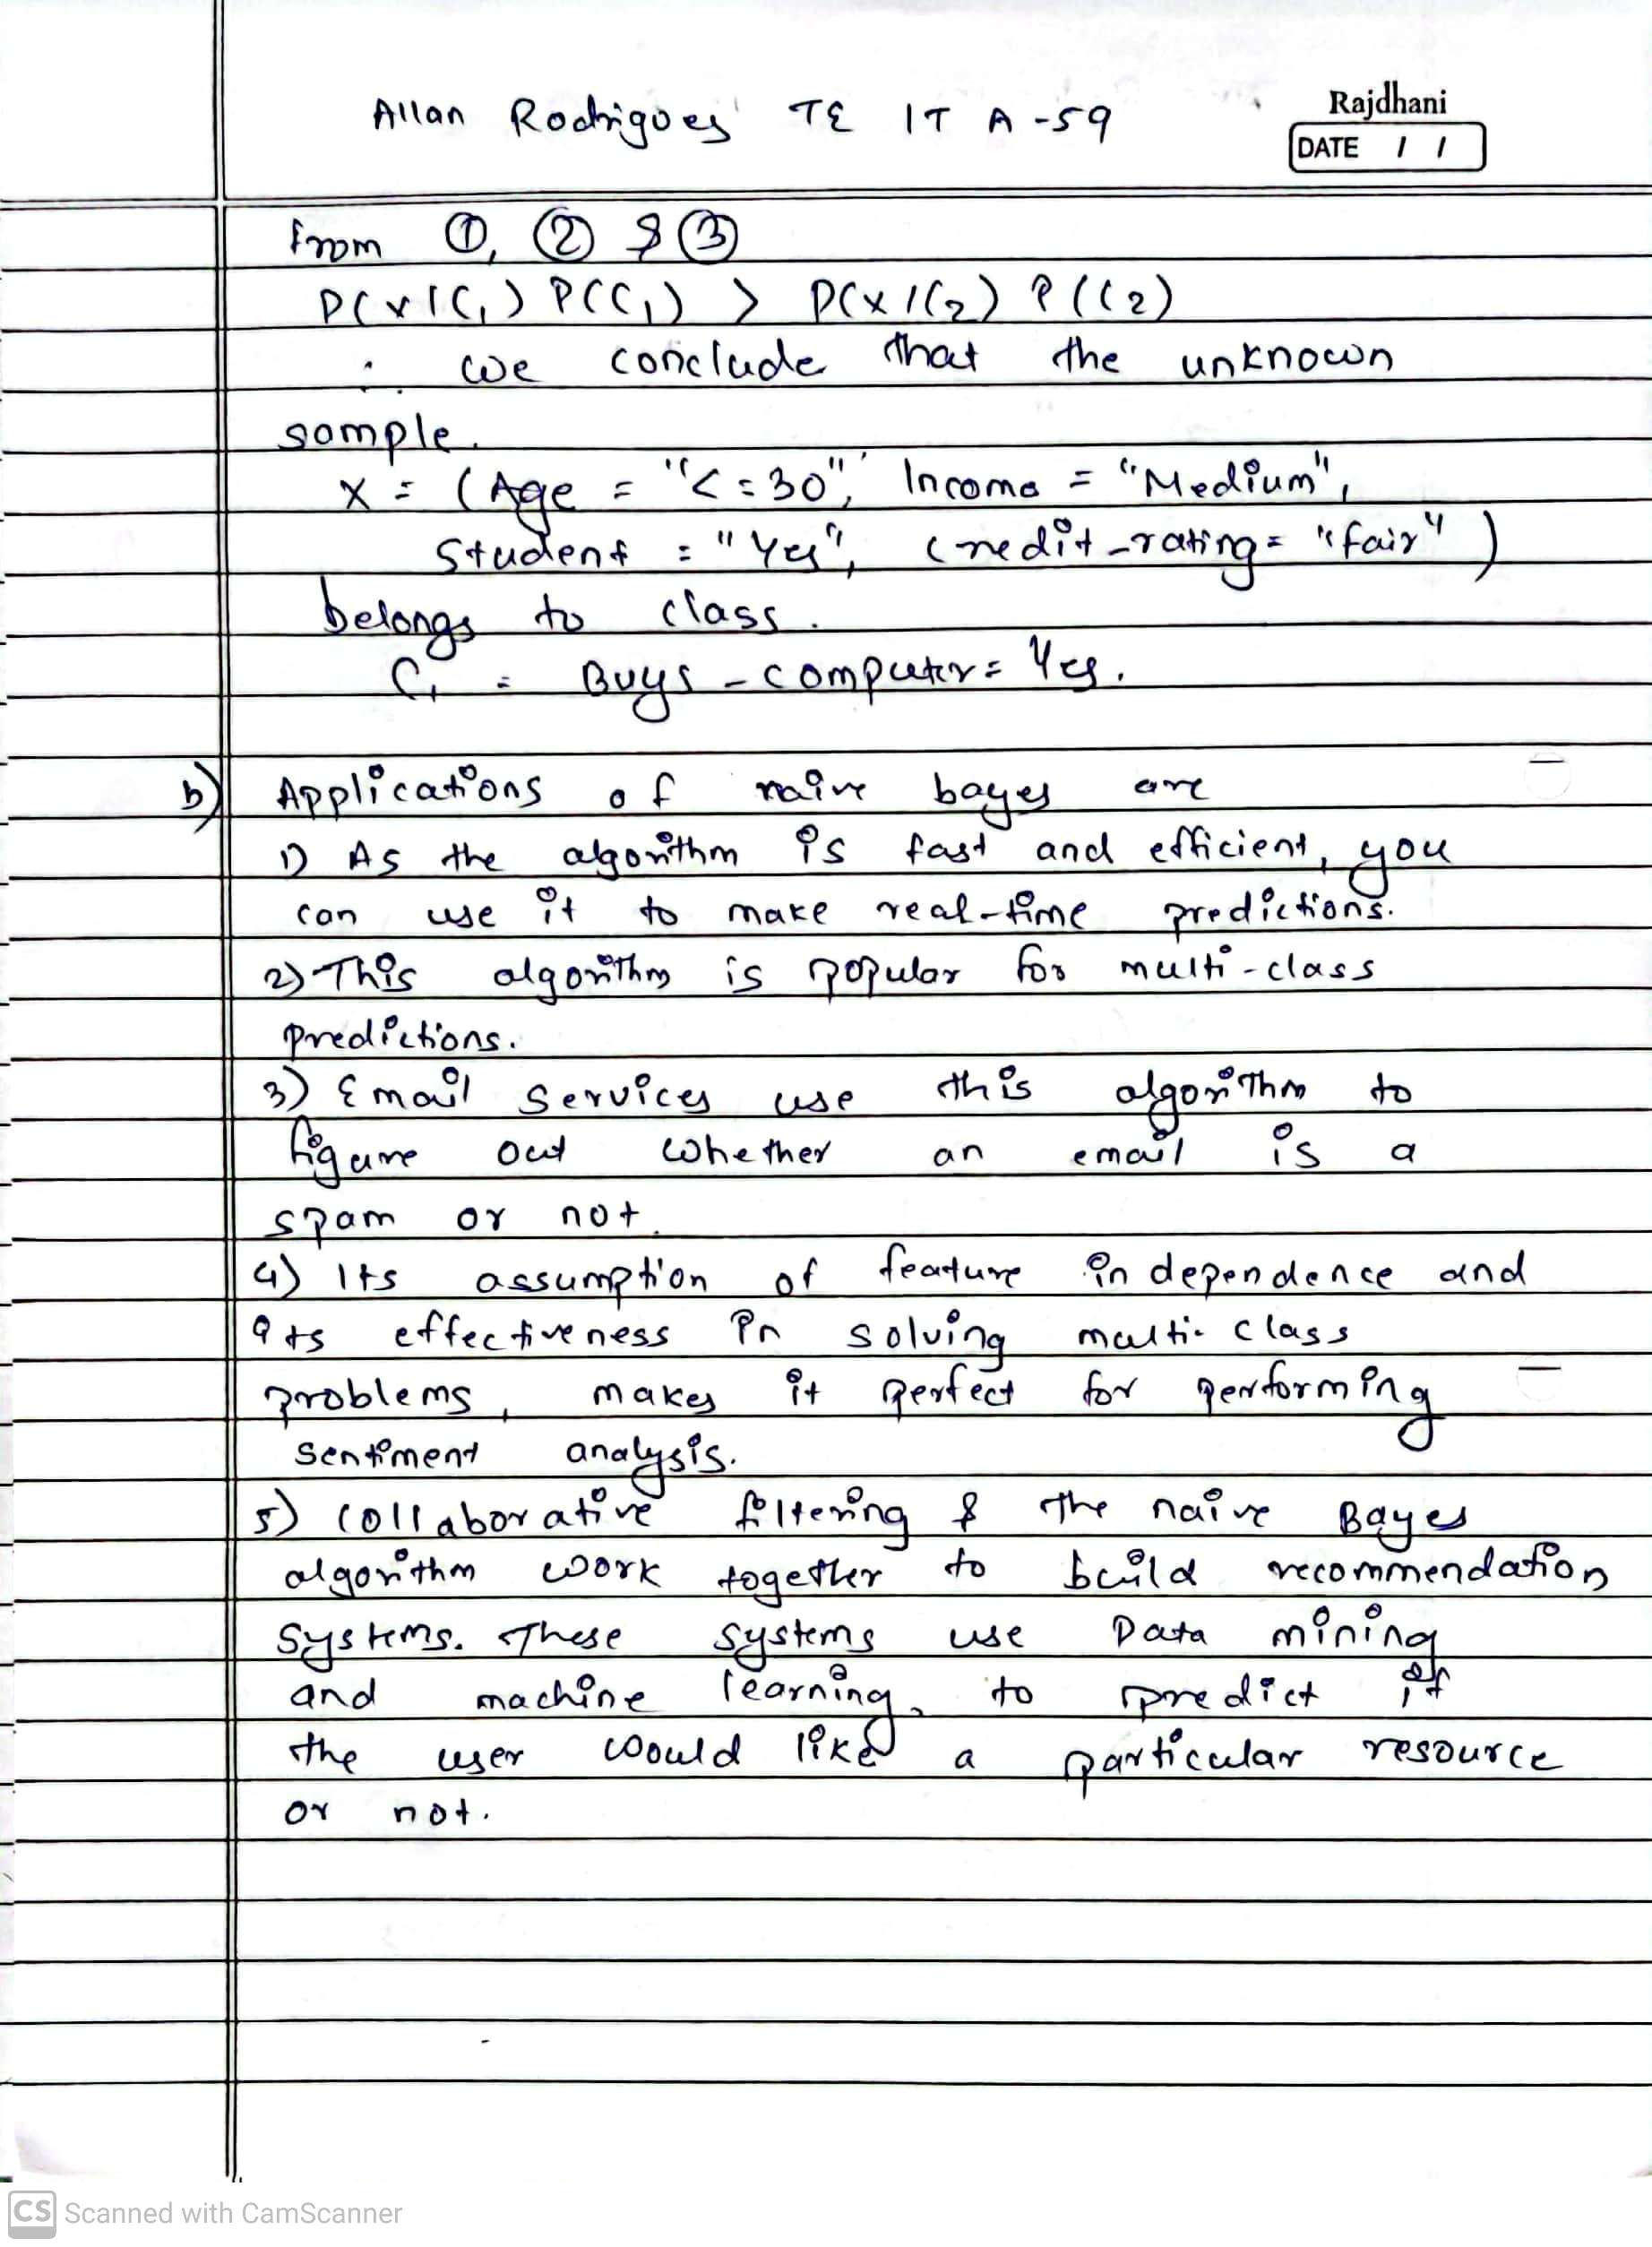 Allan Rodrigues TE IT A-59
Rajdhani
DATE / /
from ①, ② & ③
P(x|C₁) P(C₁) > P(x|C₂) P(C₂)
∴ we conclude that the unknown
sample.
X = (Age = "<=30", Income = "Medium",
Student = "Yes", credit-rating = "fair")
belongs to class.
C₁ = Buys-computer = Yes.
b) Applications of naive bayes are
1) As the algorithm is fast and efficient, you
can use it to make real-time predictions.
2) This algorithm is popular for multi-class
predictions.
3) Email services use this algorithm to
figure out whether an email is a
spam or not.
4) Its assumption of feature independence and
its effectiveness in solving multi-class
problems, makes it perfect for performing
sentiment analysis.
5) Collaborative filtering & the naive Bayes
algorithm work together to build recommendation
systems. These systems use Data mining
and machine learning, to predict if
the user would like a particular resource
or not.
CS Scanned with CamScanner